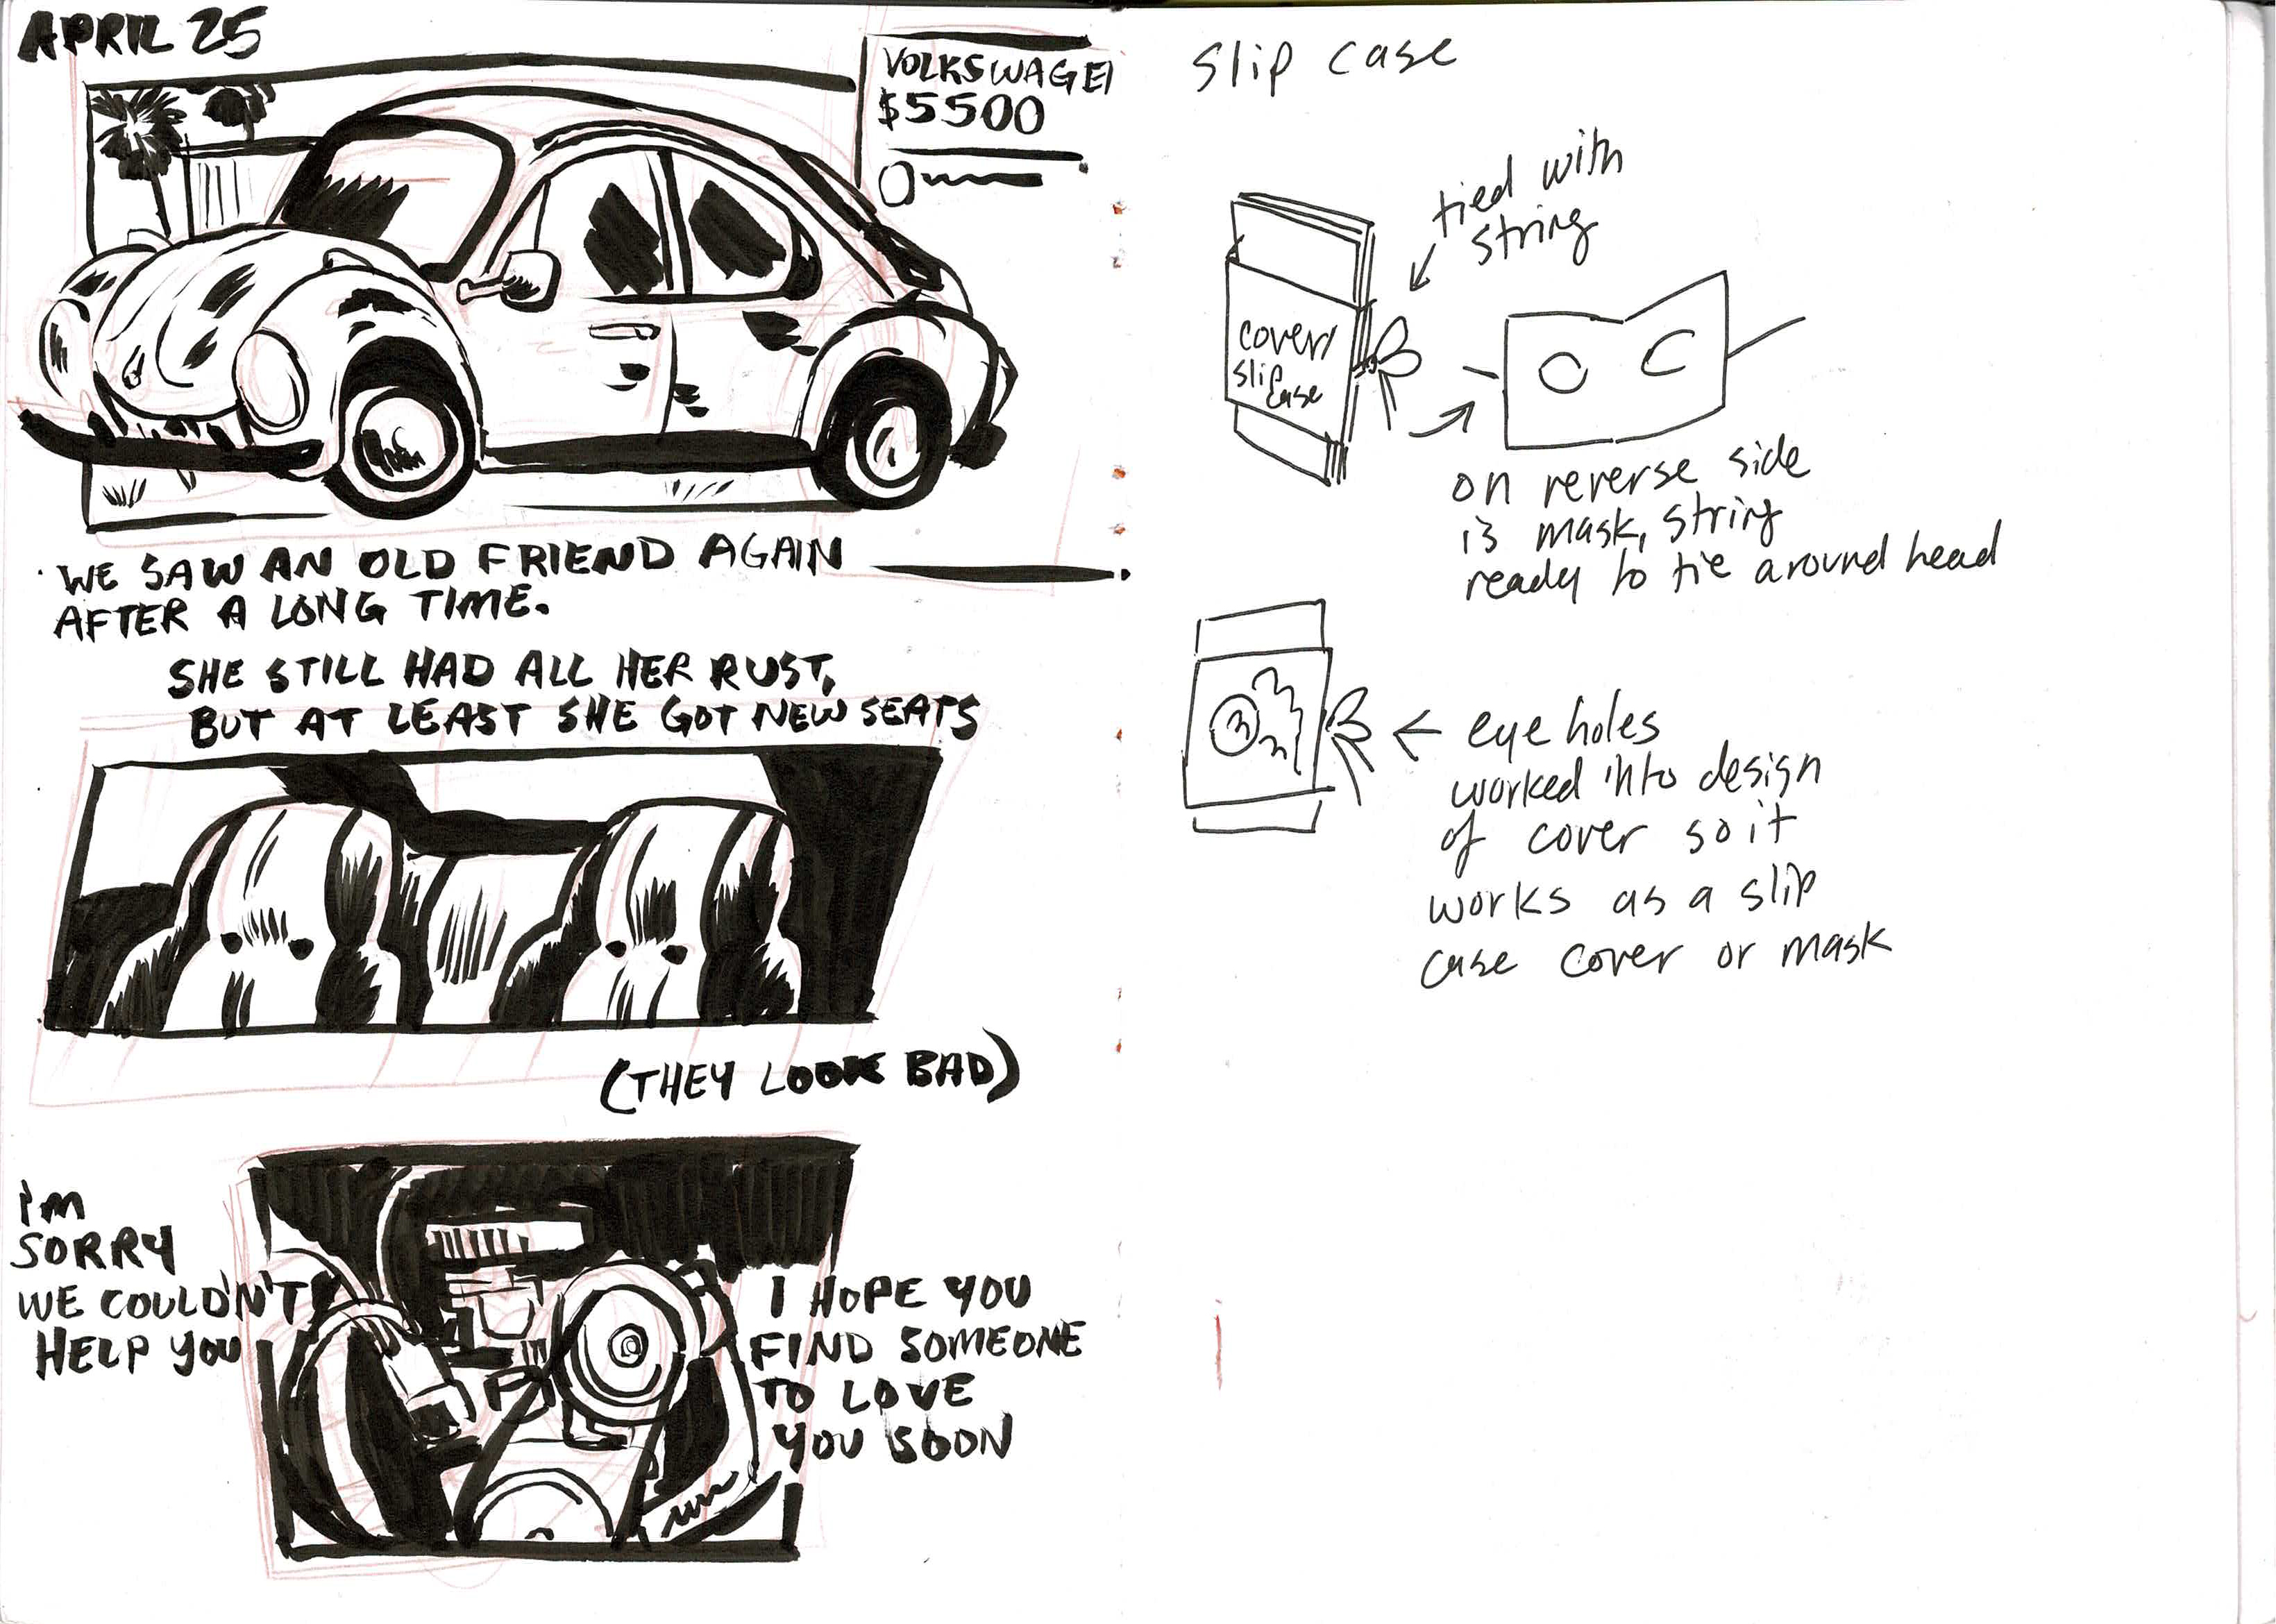 APRIL 25
VOLKSWAGEN
$5500
WE SAW AN OLD FRIEND AGAIN
AFTER A LONG TIME.
SHE STILL HAD ALL HER RUST,
BUT AT LEAST SHE GOT NEW SEATS
(THEY LOOK BAD)
i'm
SORRY
WE COULDN'T
HELP YOU
I HOPE YOU
FIND SOMEONE
TO LOVE
YOU SOON
slip case
tied with
string
cover/
slip
case
on reverse side
is mask, string
ready to tie around head
eye holes
worked into design
of cover so it
works as a slip
case cover or mask